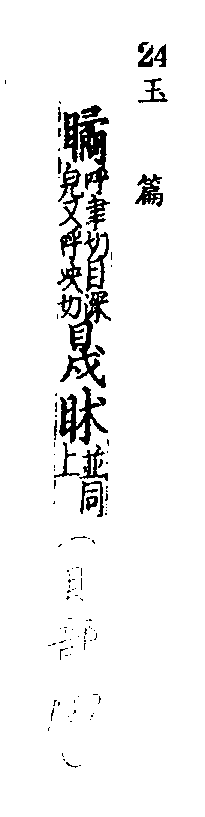 24 玉 篇
瞲呼聿切目深皃又呼決切 並同上
(目部